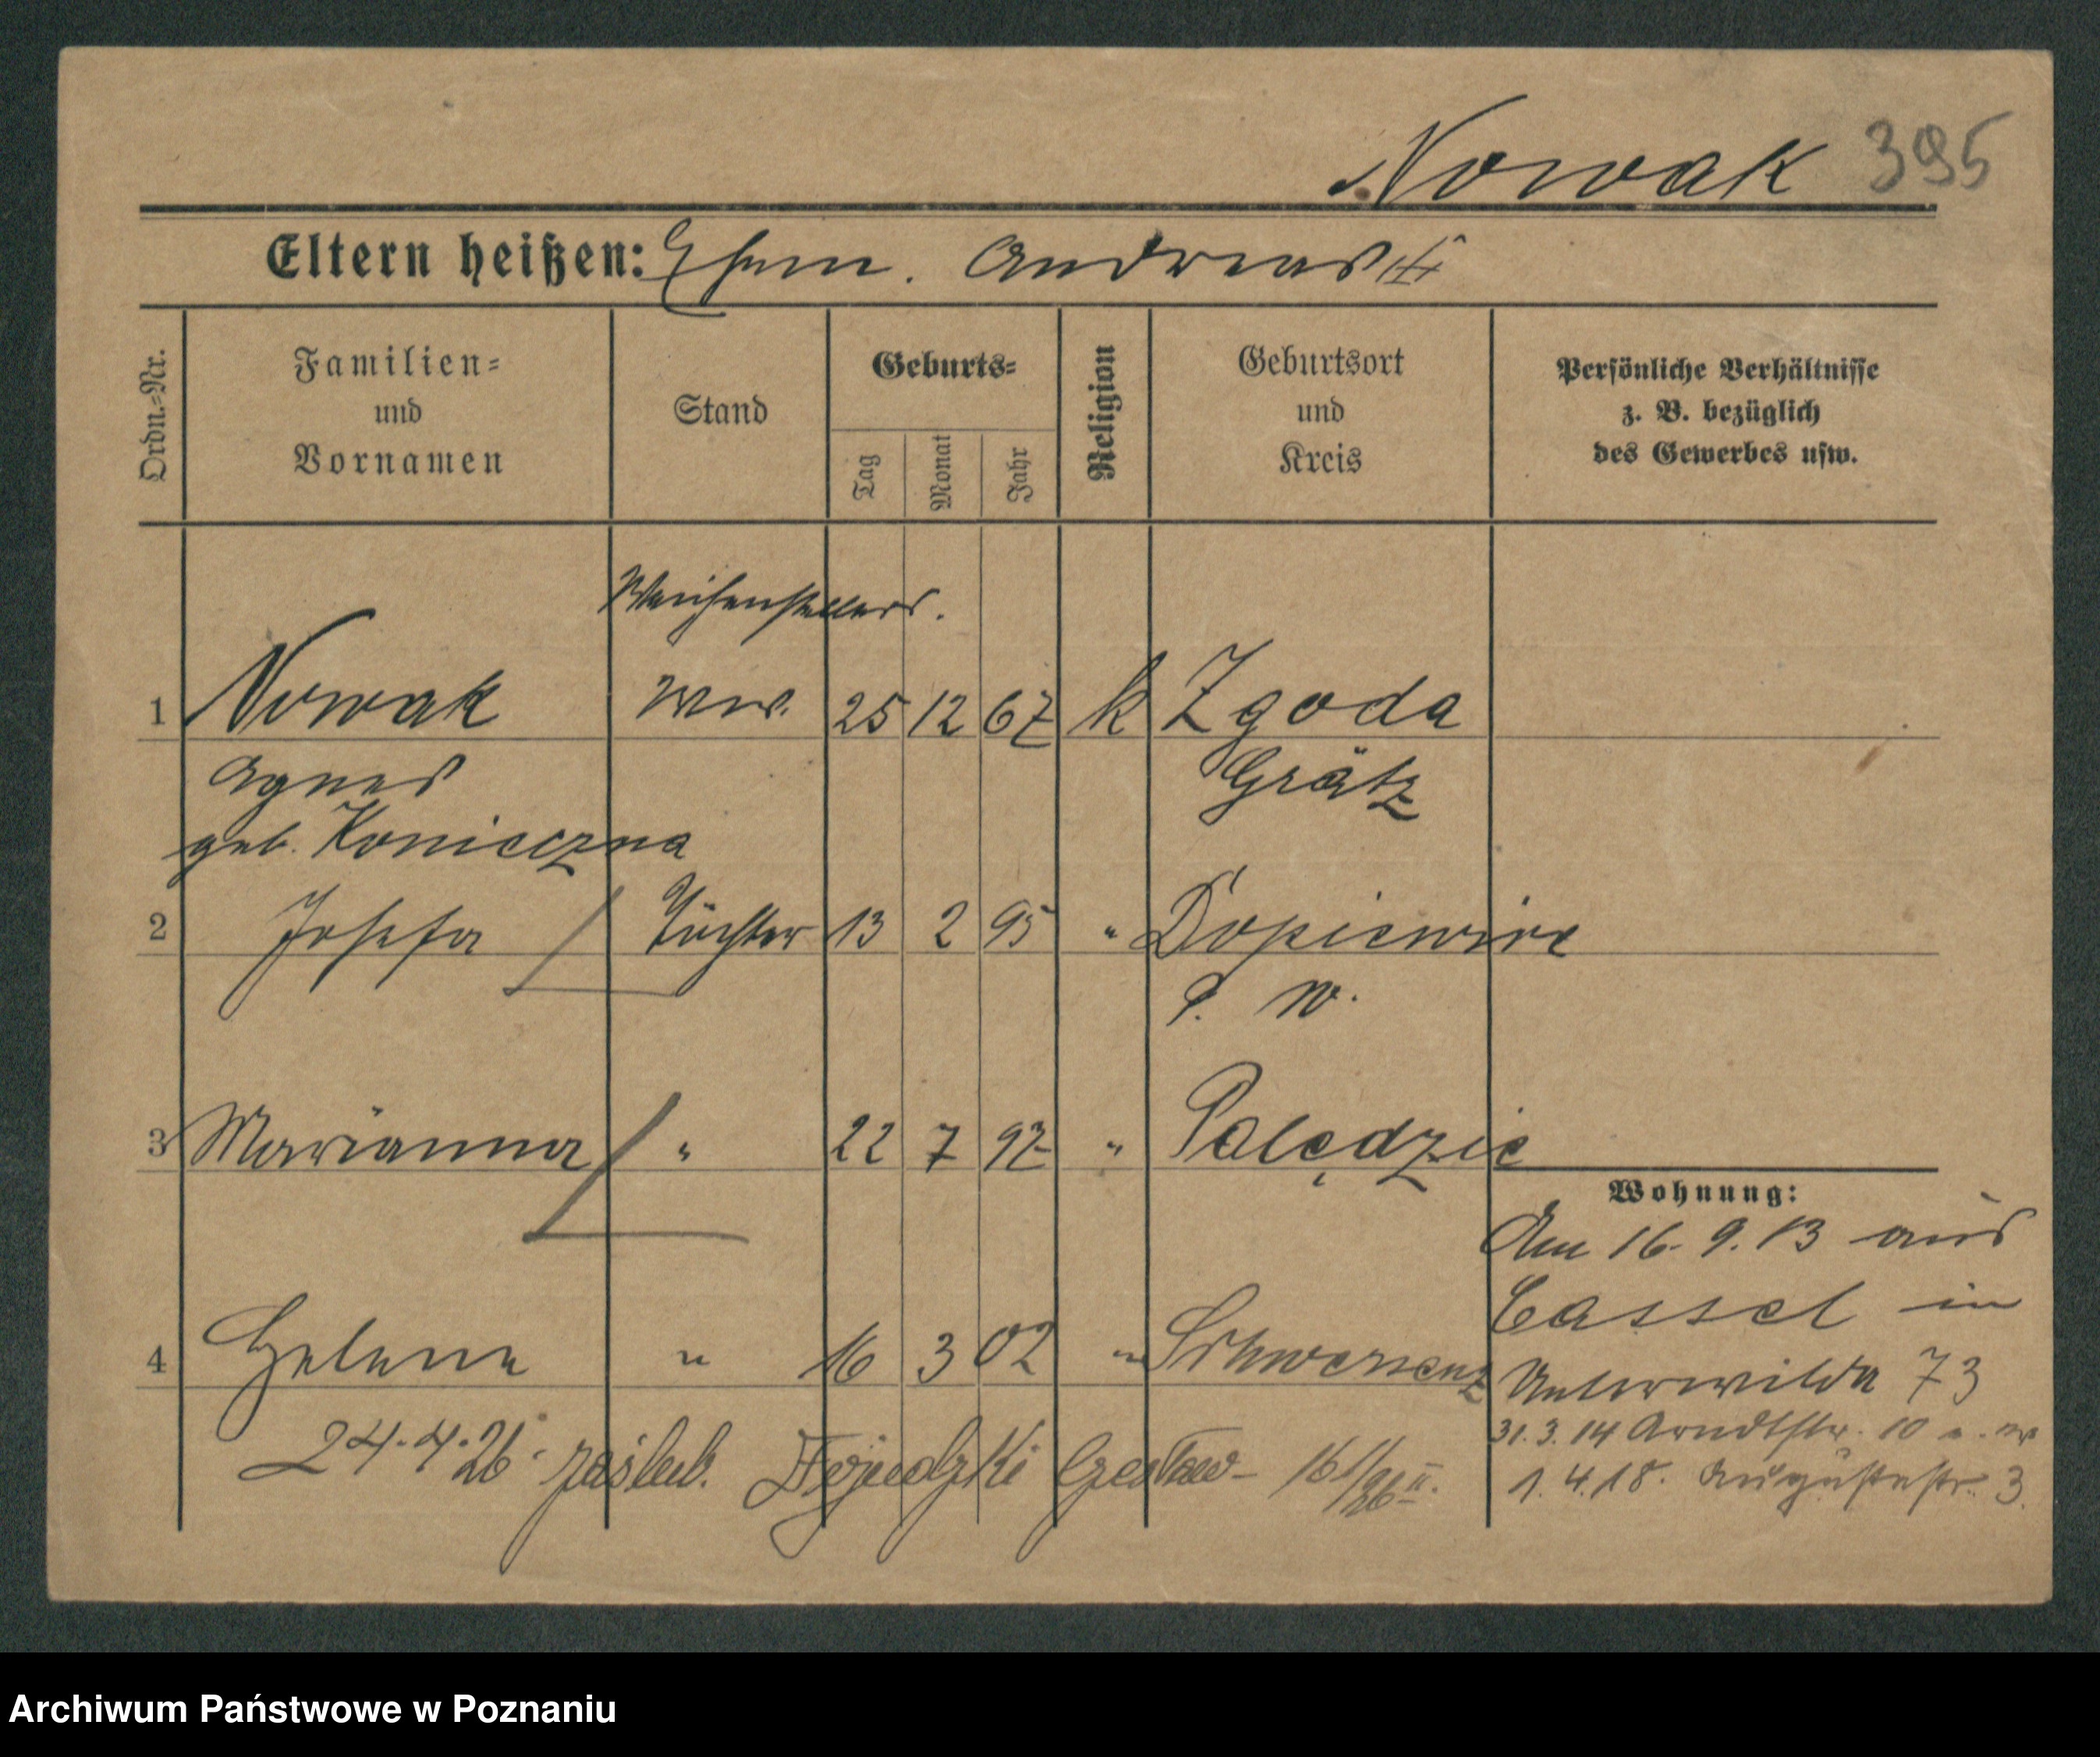 Nowak 395
Eltern heißen: Ehem. Andreas
Ordn.-Nr.
Familien-
und
Vornamen
Stand
Geburts-
Tag
Monat
Jahr
Religion
Geburtsort
und
Kreis
Persönliche Verhältnisse
z. B. bezüglich
des Gewerbes usw.
Weichenstellers.
1 Nowak Ww. 25 12 67 k Zgoda
Agnes Grätz
geb. Konieczna
2 Josefa Töchter 13 2 95 " Dopiewiec
P. W.
3 Marianna " 22 7 97 " Palędzie
Wohnung:
Am 16. 9. 13 aus
Cassel in
4 Helene " 16 3 02 " Schwersenz
Unterwilda 73
31. 3. 14 Arndtstr. 10
1. 4. 18. Augustastr. 3.
24. 4. 26. zaślub. Czesław 16